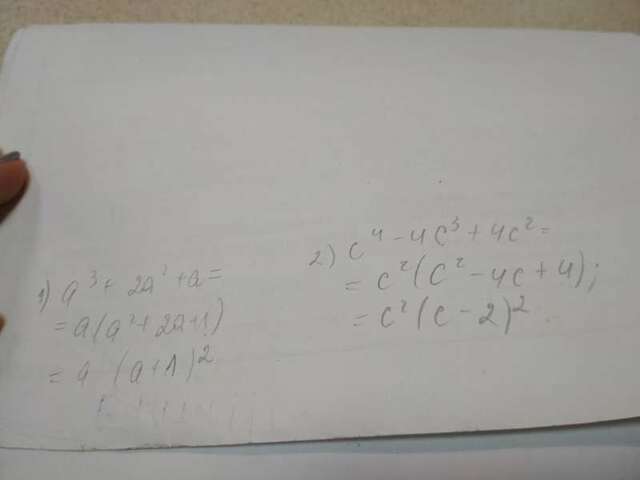 1) a³ + 2a² + a =
= a(a² + 2a + 1)
= a (a + 1)²
2) c⁴ - 4c³ + 4c² =
= c²(c² - 4c + 4);
= c²(c - 2)²